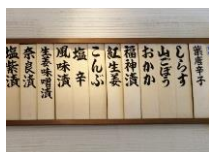 葉唐辛子
しらす
山ごぼう
おかか
福神漬
紅生姜
こんぶ
塩辛
風味漬
生姜味噌漬
奈良漬
塩柴漬